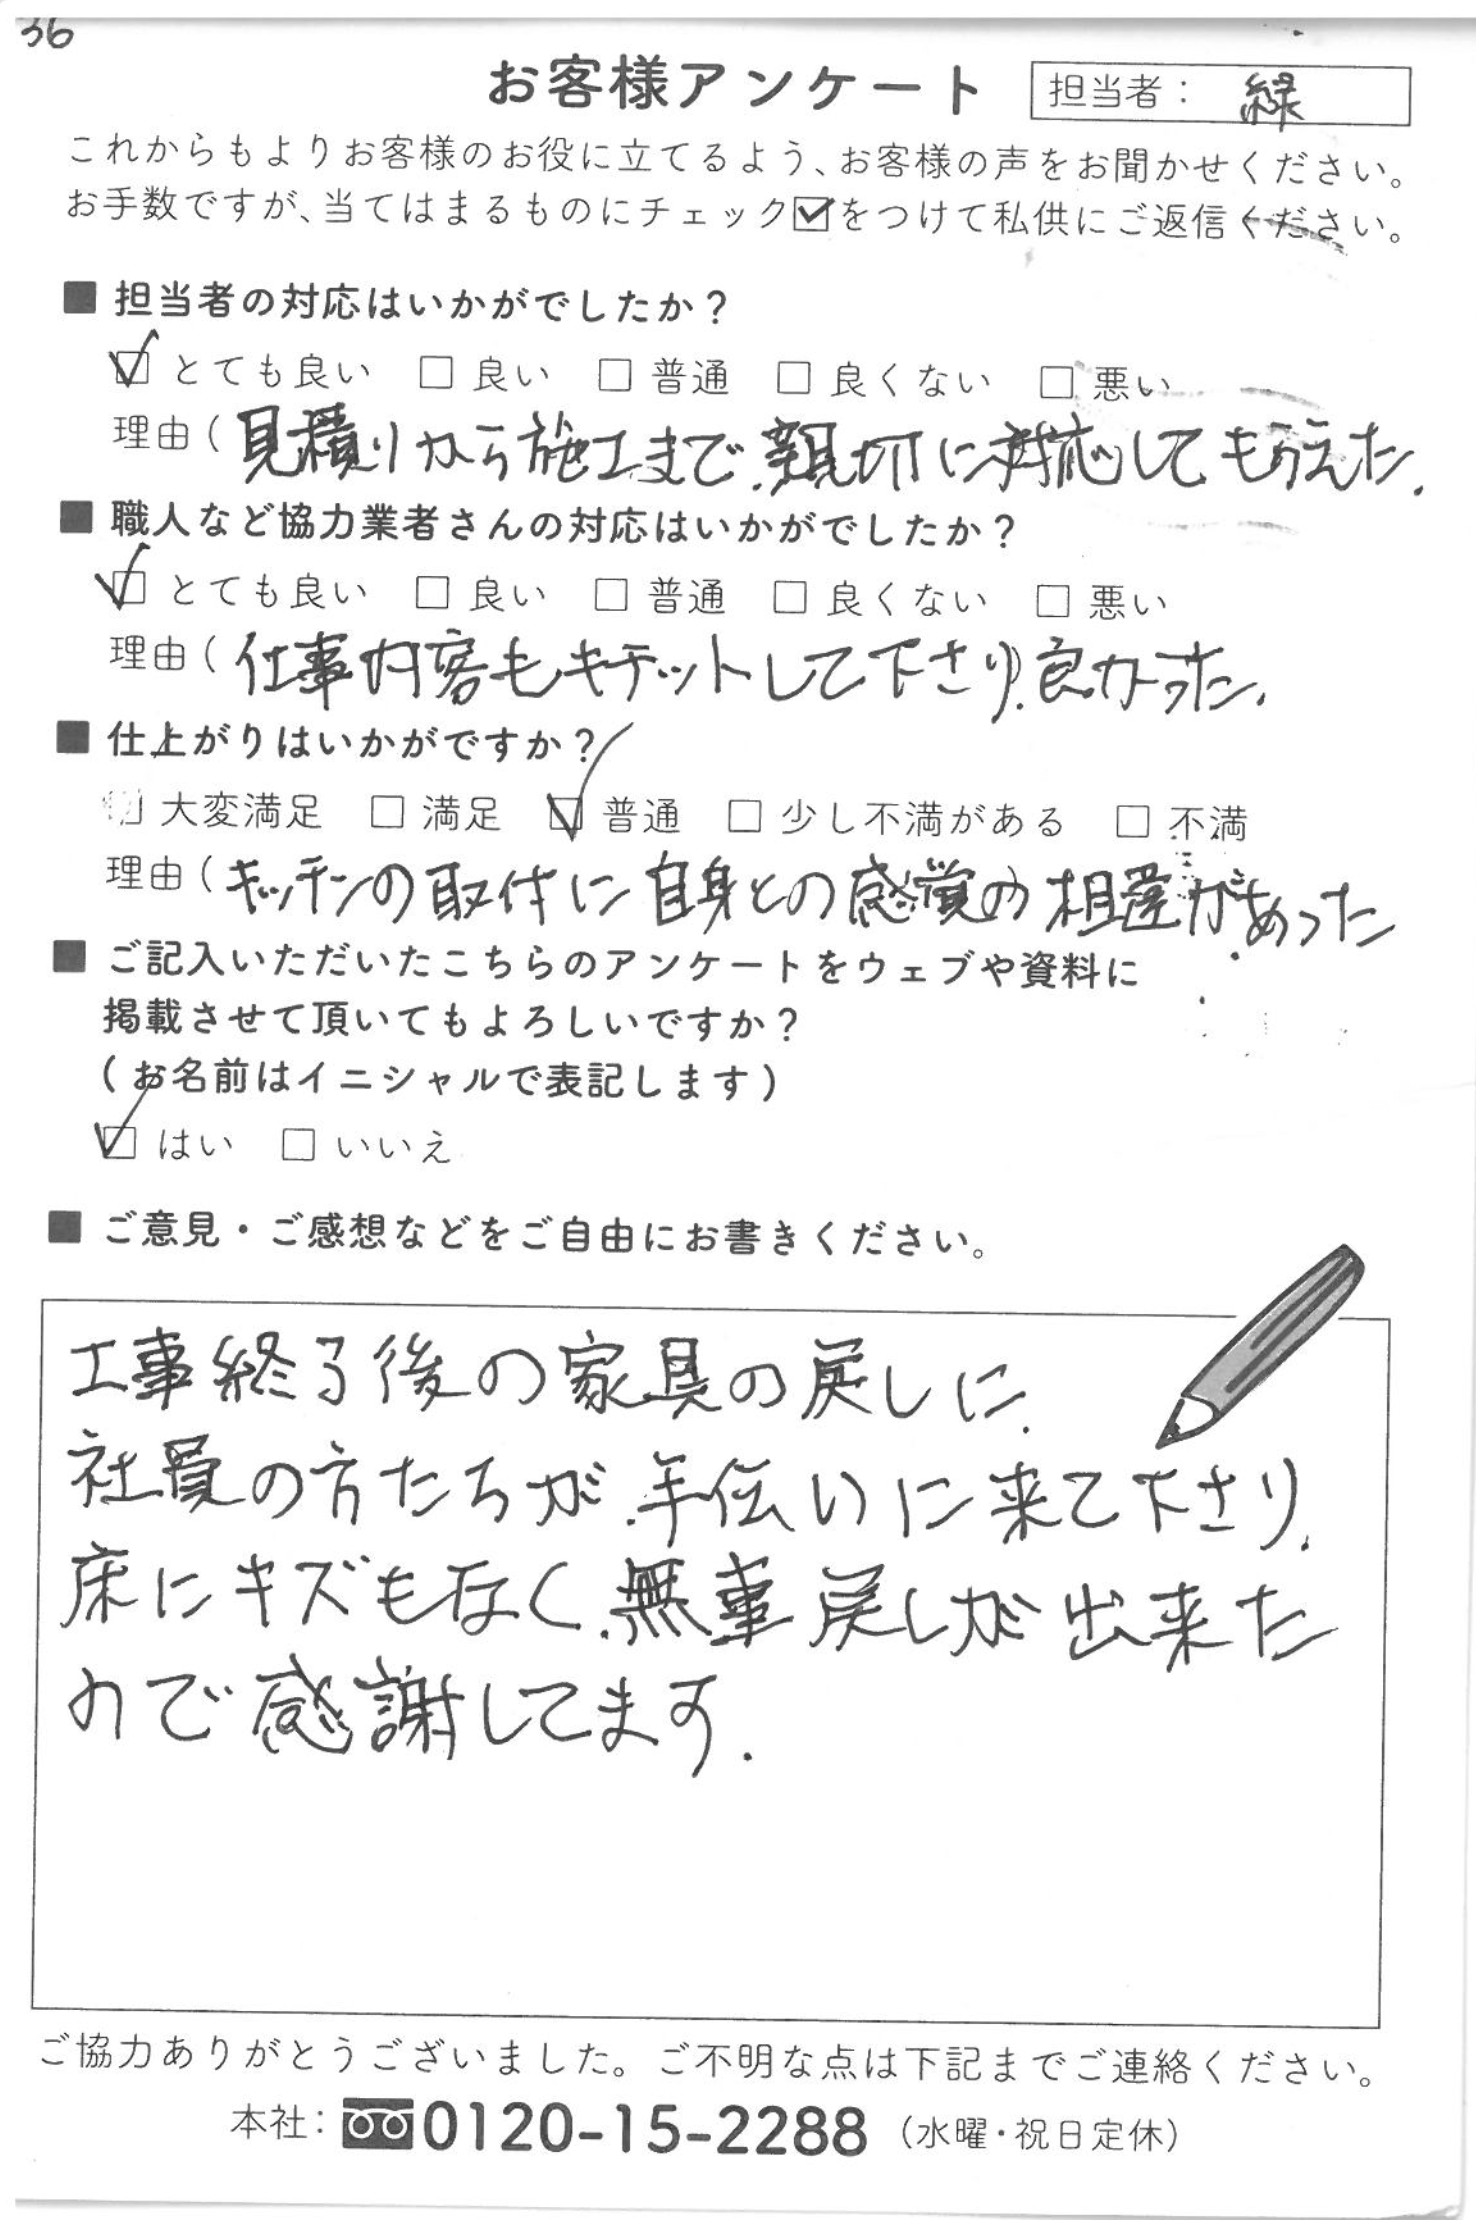 36
お客様アンケート
担当者： 緑
これからもよりお客様のお役に立てるよう、お客様の声をお聞かせください。
お手数ですが、当てはまるものにチェック☑をつけて私供にご返信ください。
■ 担当者の対応はいかがでしたか？
☑ とても良い □ 良い □ 普通 □ 良くない □ 悪い
理由（見積りから施工まで、親切に対応してもらえた。
■ 職人など協力業者さんの対応はいかがでしたか？
☑ とても良い □ 良い □ 普通 □ 良くない □ 悪い
理由（仕事内容もキチットして下さり、良かった。
■ 仕上がりはいかがですか？
□ 大変満足 □ 満足 ☑ 普通 □ 少し不満がある □ 不満
理由（キッチンの取付に自身との感覚の相違があった
■ ご記入いただいたこちらのアンケートをウェブや資料に
掲載させて頂いてもよろしいですか？
（お名前はイニシャルで表記します）
☑ はい □ いいえ
■ ご意見・ご感想などをご自由にお書きください。
工事終了後の家具の戻しに、
社員の方たちが、手伝いに来て下さり、
床にキズもなく、無事戻しが出来た
ので感謝してます。
ご協力ありがとうございました。ご不明な点は下記までご連絡ください。
本社： 0120-15-2288（水曜・祝日定休）